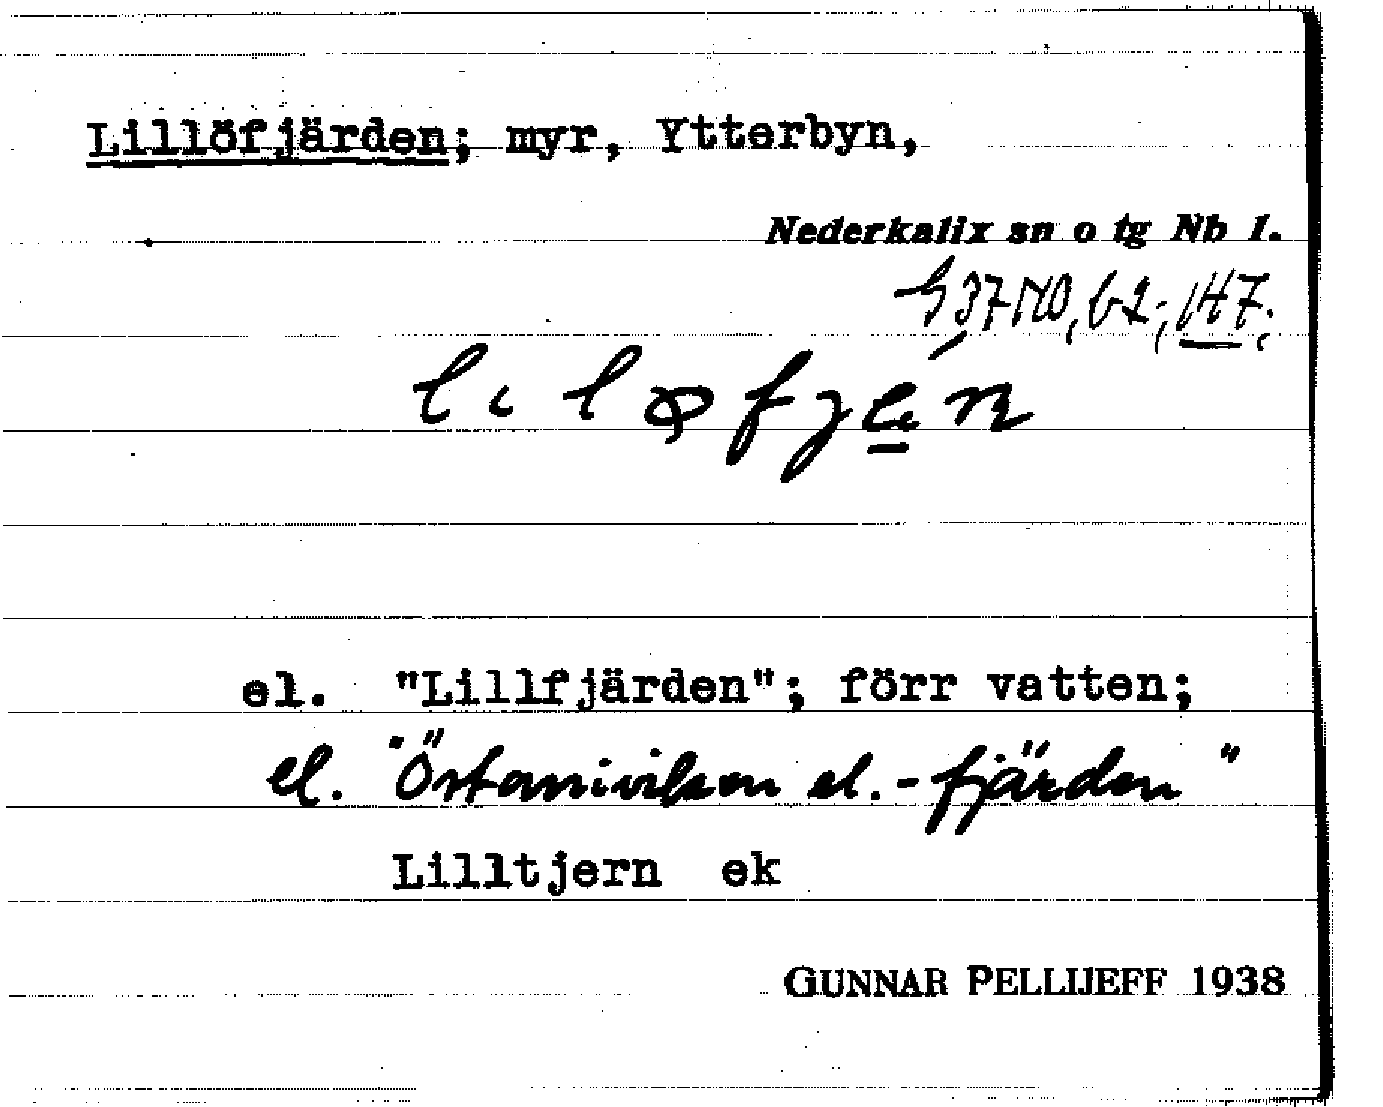 Lillöfjärden; myr, Ytterbyn,
Nederkalix sn o tg Nb 1.
el. "Lillfjärden"; förr vatten;
el. "Östanivilsen el. -fjärden"
Lilltjern ek
GUNNAR PELLIJEFF 1938